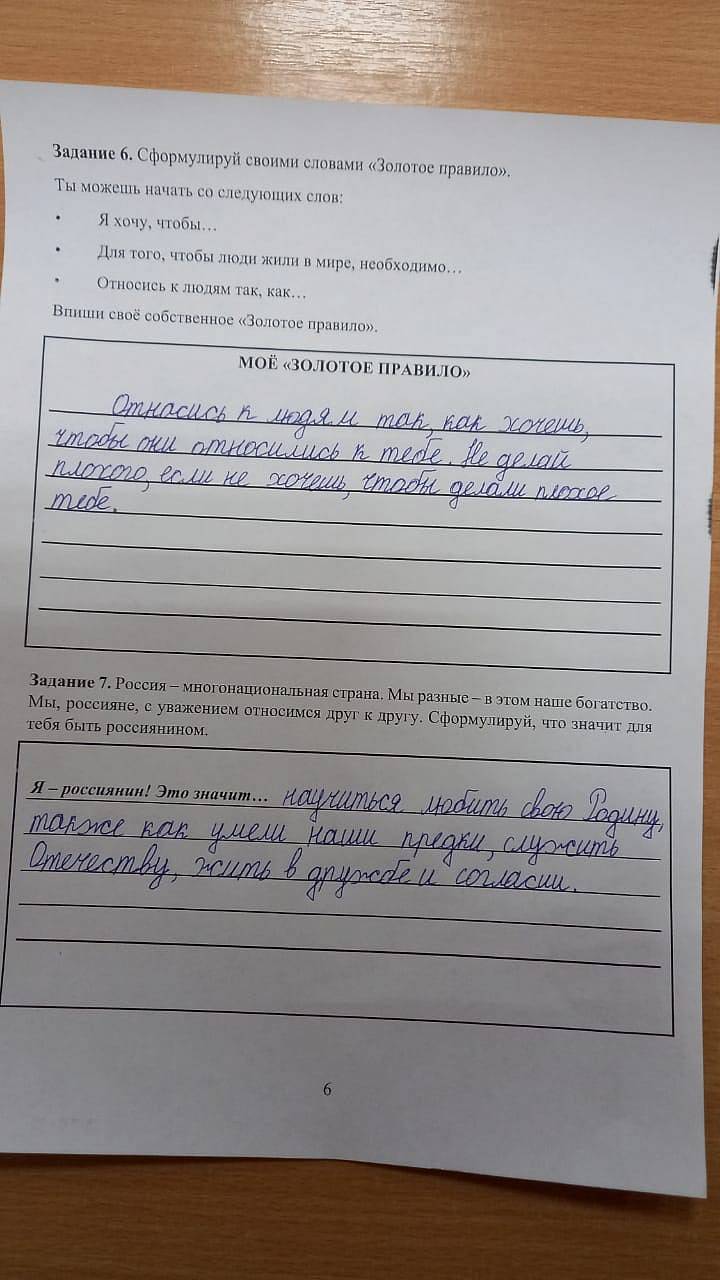 Задание 6. Сформулируй своими словами «Золотое правило».
Ты можешь начать со следующих слов:
• Я хочу, чтобы…
• Для того, чтобы люди жили в мире, необходимо…
• Относись к людям так, как…
Впиши своё собственное «Золотое правило».
МОЁ «ЗОЛОТОЕ ПРАВИЛО»
Отнасись к людям так, как хочешь,
чтобы они относились к тебе. Не делай
плохого, если не хочешь, чтобы делали плохое
тебе.
Задание 7. Россия – многонациональная страна. Мы разные – в этом наше богатство.
Мы, россияне, с уважением относимся друг к другу. Сформулируй, что значит для
тебя быть россиянином.
Я – россиянин! Это значит… научиться любить свою Родину,
также как умели наши предки, служить
Отечеству, жить в дружбе и согласии.
6